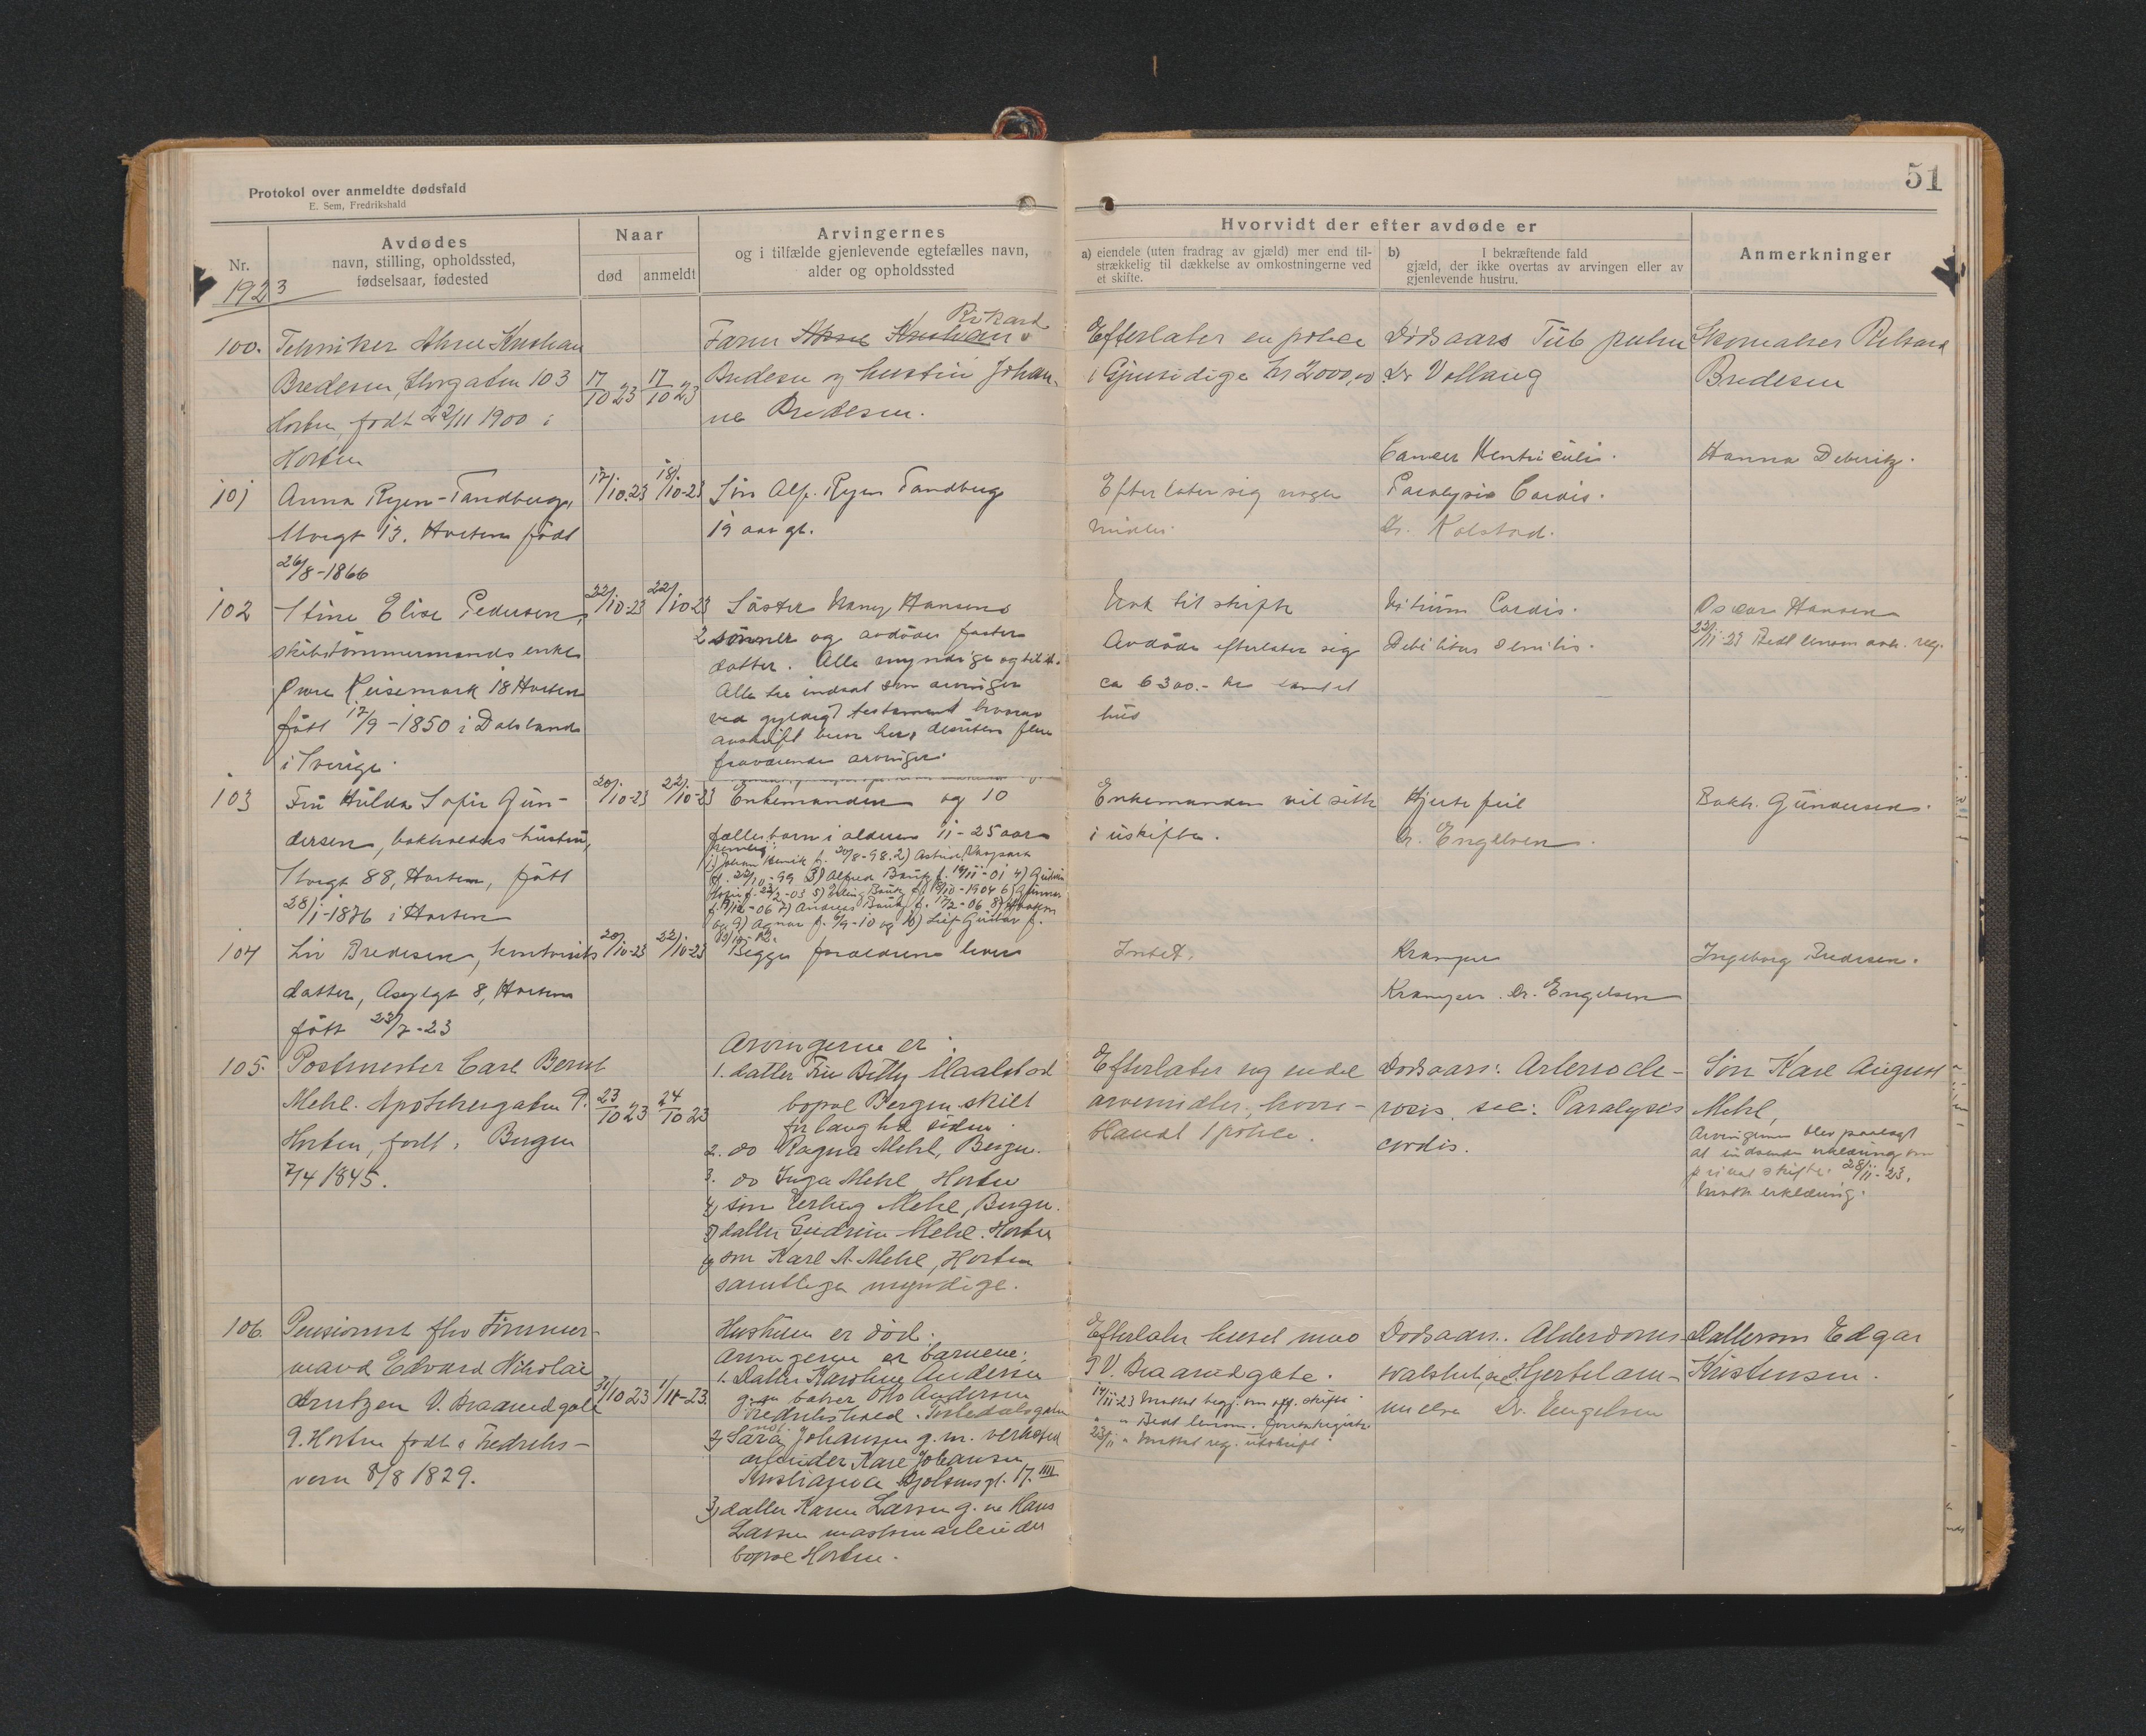 51
Protokol over anmeldte dødsfald
E. Sem, Fredrikshald
Nr.
1923
Avdødes
navn, stilling, opholdssted,
fødselsaar, fødested
Naar
død
anmeldt
Arvingernes
og i tilfælde gjenlevende egtefælles navn,
alder og opholdssted
Hvorvidt der efter avdøde er
a) eiendele (uten fradrag av gjæld) mer end til-
strækkelig til dækkelse av omkostningerne ved
et skifte.
b) I bekræftende fald
gjæld, der ikke overtas av arvingen eller av
gjenlevende hustru.
Anmerkninger
100. Tekniker Kristian
Bredesen, Storgaten 103
Horten, født 22/11 1900 i
Horten
17/10 23
17/10 23
Rikard
Faren Kristian
Bredesen og hustru Johan-
ne Bredesen.
Efterlater en police
i Gjensidige kr 2000,00
Dødsaars Tub pulm
Dr Vollaug
Skomaker Rikard
Bredesen
101 Anna Ryen-Tandberg,
Storgt 13. Horten født
26/8-1866
17/10.23
18/10-23
Søn Alf. Ryen Tandberg
19 aar gl.
Efterlater sig nogen
midler.
Cancer Ventriculis.
Paralysis Cordis.
Dr. Kolstad.
Hanna Deberitz.
102 Stine Elise Pedersen,
skibstømmermands enke
Øvre Keisemark 18 Horten
født 17/9-1850 i Dalsland
i Sverige.
22/10-23
22/10 23
Søster Nany Hansens
2 sønner og avdødes foster
datter. Alle myndige og
Alle tre indsat som arvinger
ved gyldigt testament hvorav
avskrift beror her, desuten flere
fraværende arvinger.
Nok til skifte
Avdøde efterlater sig
ca 6300.- kr samt et
hus
Vitium Cordis.
Debilitas senilis.
Oscar Hansen
22/11-23 Bedt lensm. reg.
103 Fru Hulda Sofie Gun-
dersen, bokholders hustru,
Storgt 88, Horten, født
28/1-1876 i Horten
20/10-23
22/10-23
Enkemanden og 10
fællesbarn i alderen 11-25 aar
nemlig:
1) Johan Henrik f. 20/8-98. 2) Astrid
f. 22/10-99 3) Alfred Bautz f. 14/11-01 4)
f. 22/2-03 5) Bautz f. 18/10-1904 6) Gunnar
f. -06 7) Andreas Bautz f. 17/2-06 8) Haakon
og 9) Agnar f. 6/9-10 og 10) Leif Gustav f.
Enkemanden vil sitte
i uskifte.
Hjertefeil
Dr. Engelsen.
Bokh. Gundersen.
104 Liv Bredesen, kontorists
datter, Asylgt 8, Horten
født 23/7-23
20/10-23
22/10-23
Begge forældrene lever
Intet.
Kramper
Kramper. Dr. Engelsen
Ingeborg Bredesen.
105. Postmester Carl Bernt
Mehl. Apothekergaten 9.
Horten, født i Bergen
7/4 1845.
23/10 23
24/10 23
Arvingerne er:
1. datter Fru Betty Maalstad
bopæl Bergen skilt
for lang tid siden.
2. do Ragna Mehl, Bergen.
3. do Inga Mehl Horten
4) søn Erling Mehl, Bergen.
5) datter Gudrun Mehl. Horten
6) søn Karl A. Mehl, Horten
samtlige myndige.
Efterlater sig endel
arvemidler, hvori-
blandt 1 police.
Dødsaars: Arterioscle-
rosis, sec: Paralysis
cordis.
Søn Karl August
Mehl,
Arvingerne blev paalagt
at indsende erklæring om
privat skifte. 28/11-23.
Mott. erklæring.
106. Pensionist fhv Tømmer-
mand Edvard Nikolai
Arntzen V. Braarudgate
9. Horten født i Fredriks-
vern 8/8 1829.
31/10 23
1/11-23.
Hustruen er død.
Arvingerne er barnene:
1. Datter Karoline Andersen
g.m. baker Otto Andersen
Fredrikstad.
2) Sara Johansen g.m. verksted
arbeider Karl Johansen
Kristiania gt. 17. IIII
3) datter Karen Larsen g. m Hans
Larsen maskinarbeider
bopæl Horten.
Efterlater huset mno
9 V. Braarudgate.
14/11-23 Mottat begj. om off. skifte
" " Bedt lensm. foreta registr.
23/11 " Mottat reg. utskrift.
Dødsaars: Alderdoms-
svakhet, sec Hjertelam-
melse Dr. Engelsen
Dattersøn Edgar
Kristensen.